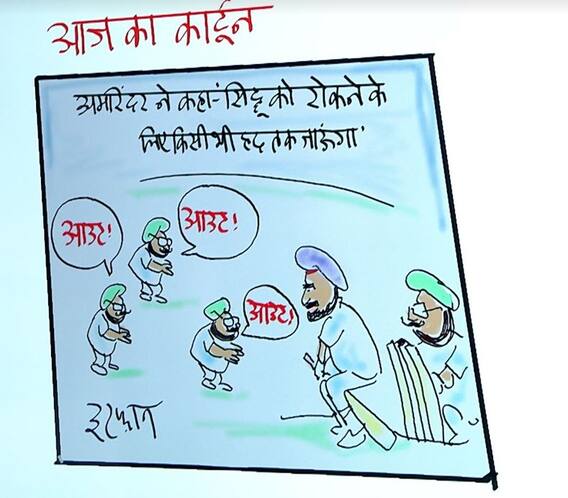 आज का कार्टून
अमरिंदर ने कहा-'सिद्धू को रोकने के
लिए किसी भी हद तक जाऊंगा'
आउट!
आउट!
आउट!
इरफान